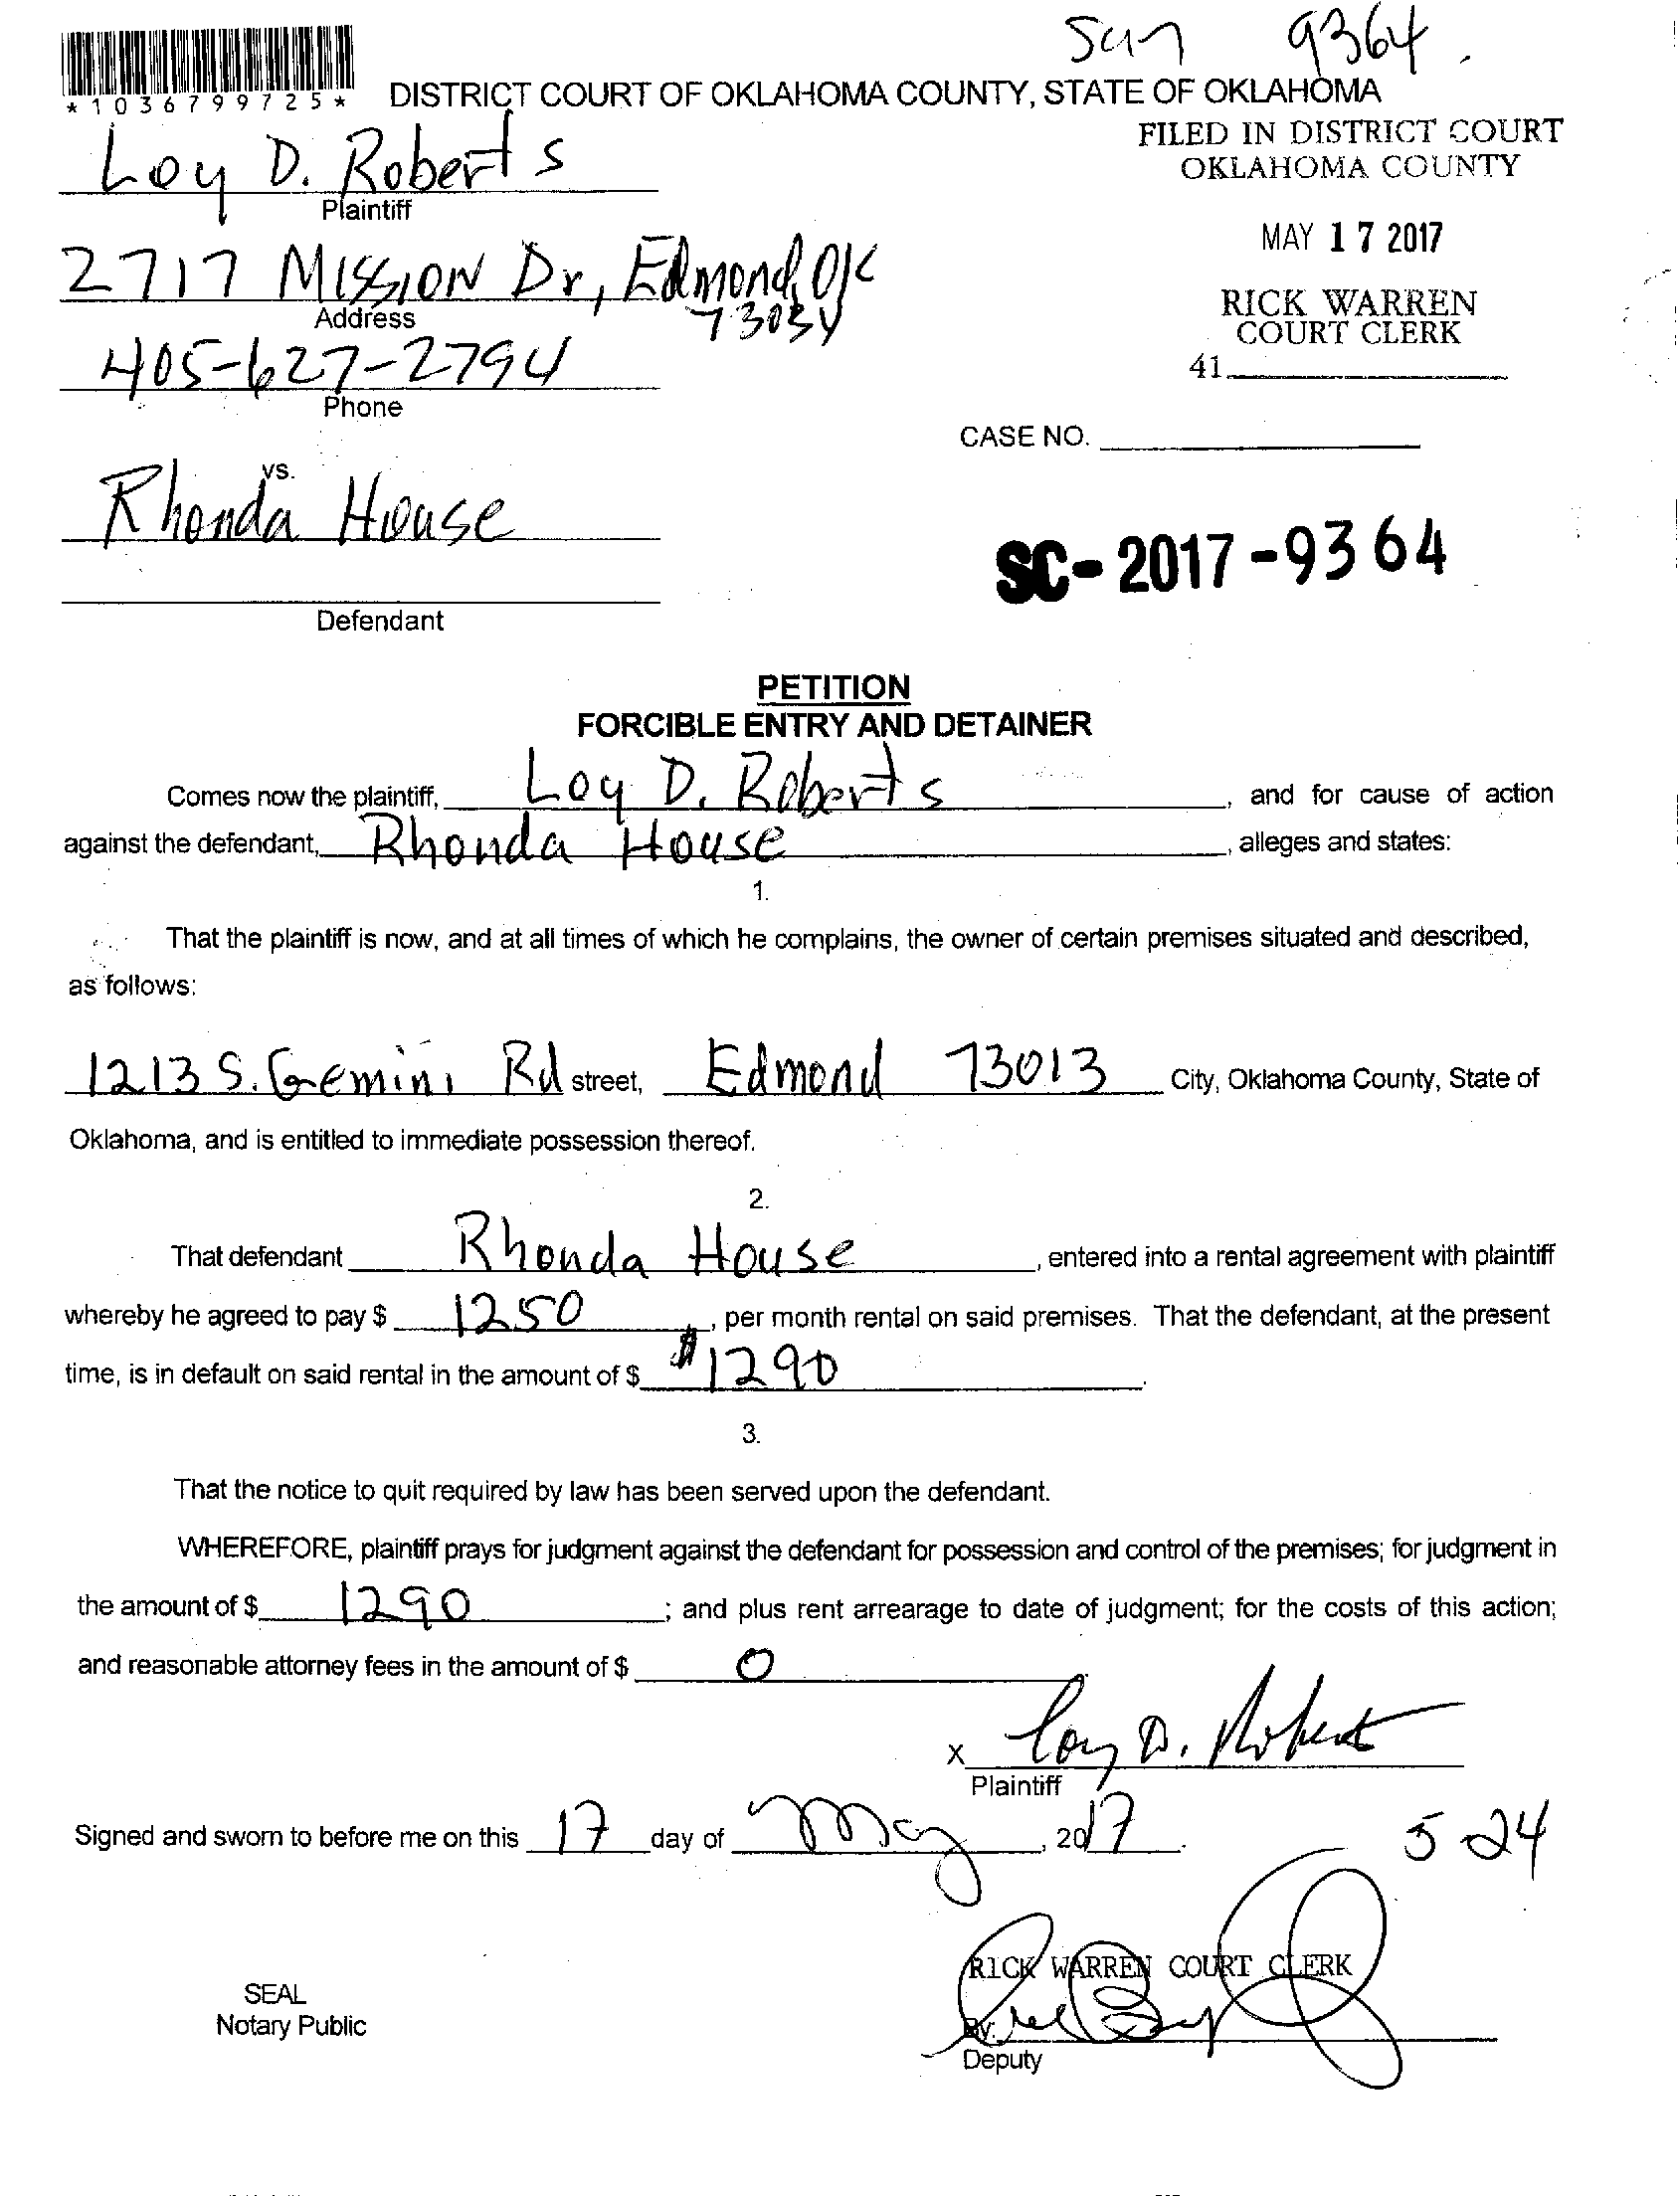 San 9364.
*1036799725*
DISTRICT COURT OF OKLAHOMA COUNTY, STATE OF OKLAHOMA
FILED IN DISTRICT COURT
OKLAHOMA COUNTY
Loy D. Roberts
Plaintiff
MAY 17 2017
2717 Mission Dr, Edmond, OK
73034
Address
RICK WARREN
COURT CLERK
405-627-2794
41
Phone
CASE NO.
vs.
Rhonda House
SC-2017-9364
Defendant
PETITION
FORCIBLE ENTRY AND DETAINER
Comes now the plaintiff, Loy D. Roberts, and for cause of action
against the defendant, Rhonda House, alleges and states:
1.
That the plaintiff is now, and at all times of which he complains, the owner of certain premises situated and described,
as follows:
1213 S. Gemini Rd street, Edmond 73013 City, Oklahoma County, State of
Oklahoma, and is entitled to immediate possession thereof.
2.
That defendant Rhonda House, entered into a rental agreement with plaintiff
whereby he agreed to pay $ 1250, per month rental on said premises. That the defendant, at the present
time, is in default on said rental in the amount of $ $1290.
3.
That the notice to quit required by law has been served upon the defendant.
WHEREFORE, plaintiff prays for judgment against the defendant for possession and control of the premises; for judgment in
the amount of $ 1290; and plus rent arrearage to date of judgment; for the costs of this action;
and reasonable attorney fees in the amount of $ 0.
x Loy D. Roberts
Plaintiff
Signed and sworn to before me on this 17 day of May, 2017.
5 24
RICK WARREN COURT CLERK
SEAL
Notary Public
By:
Deputy